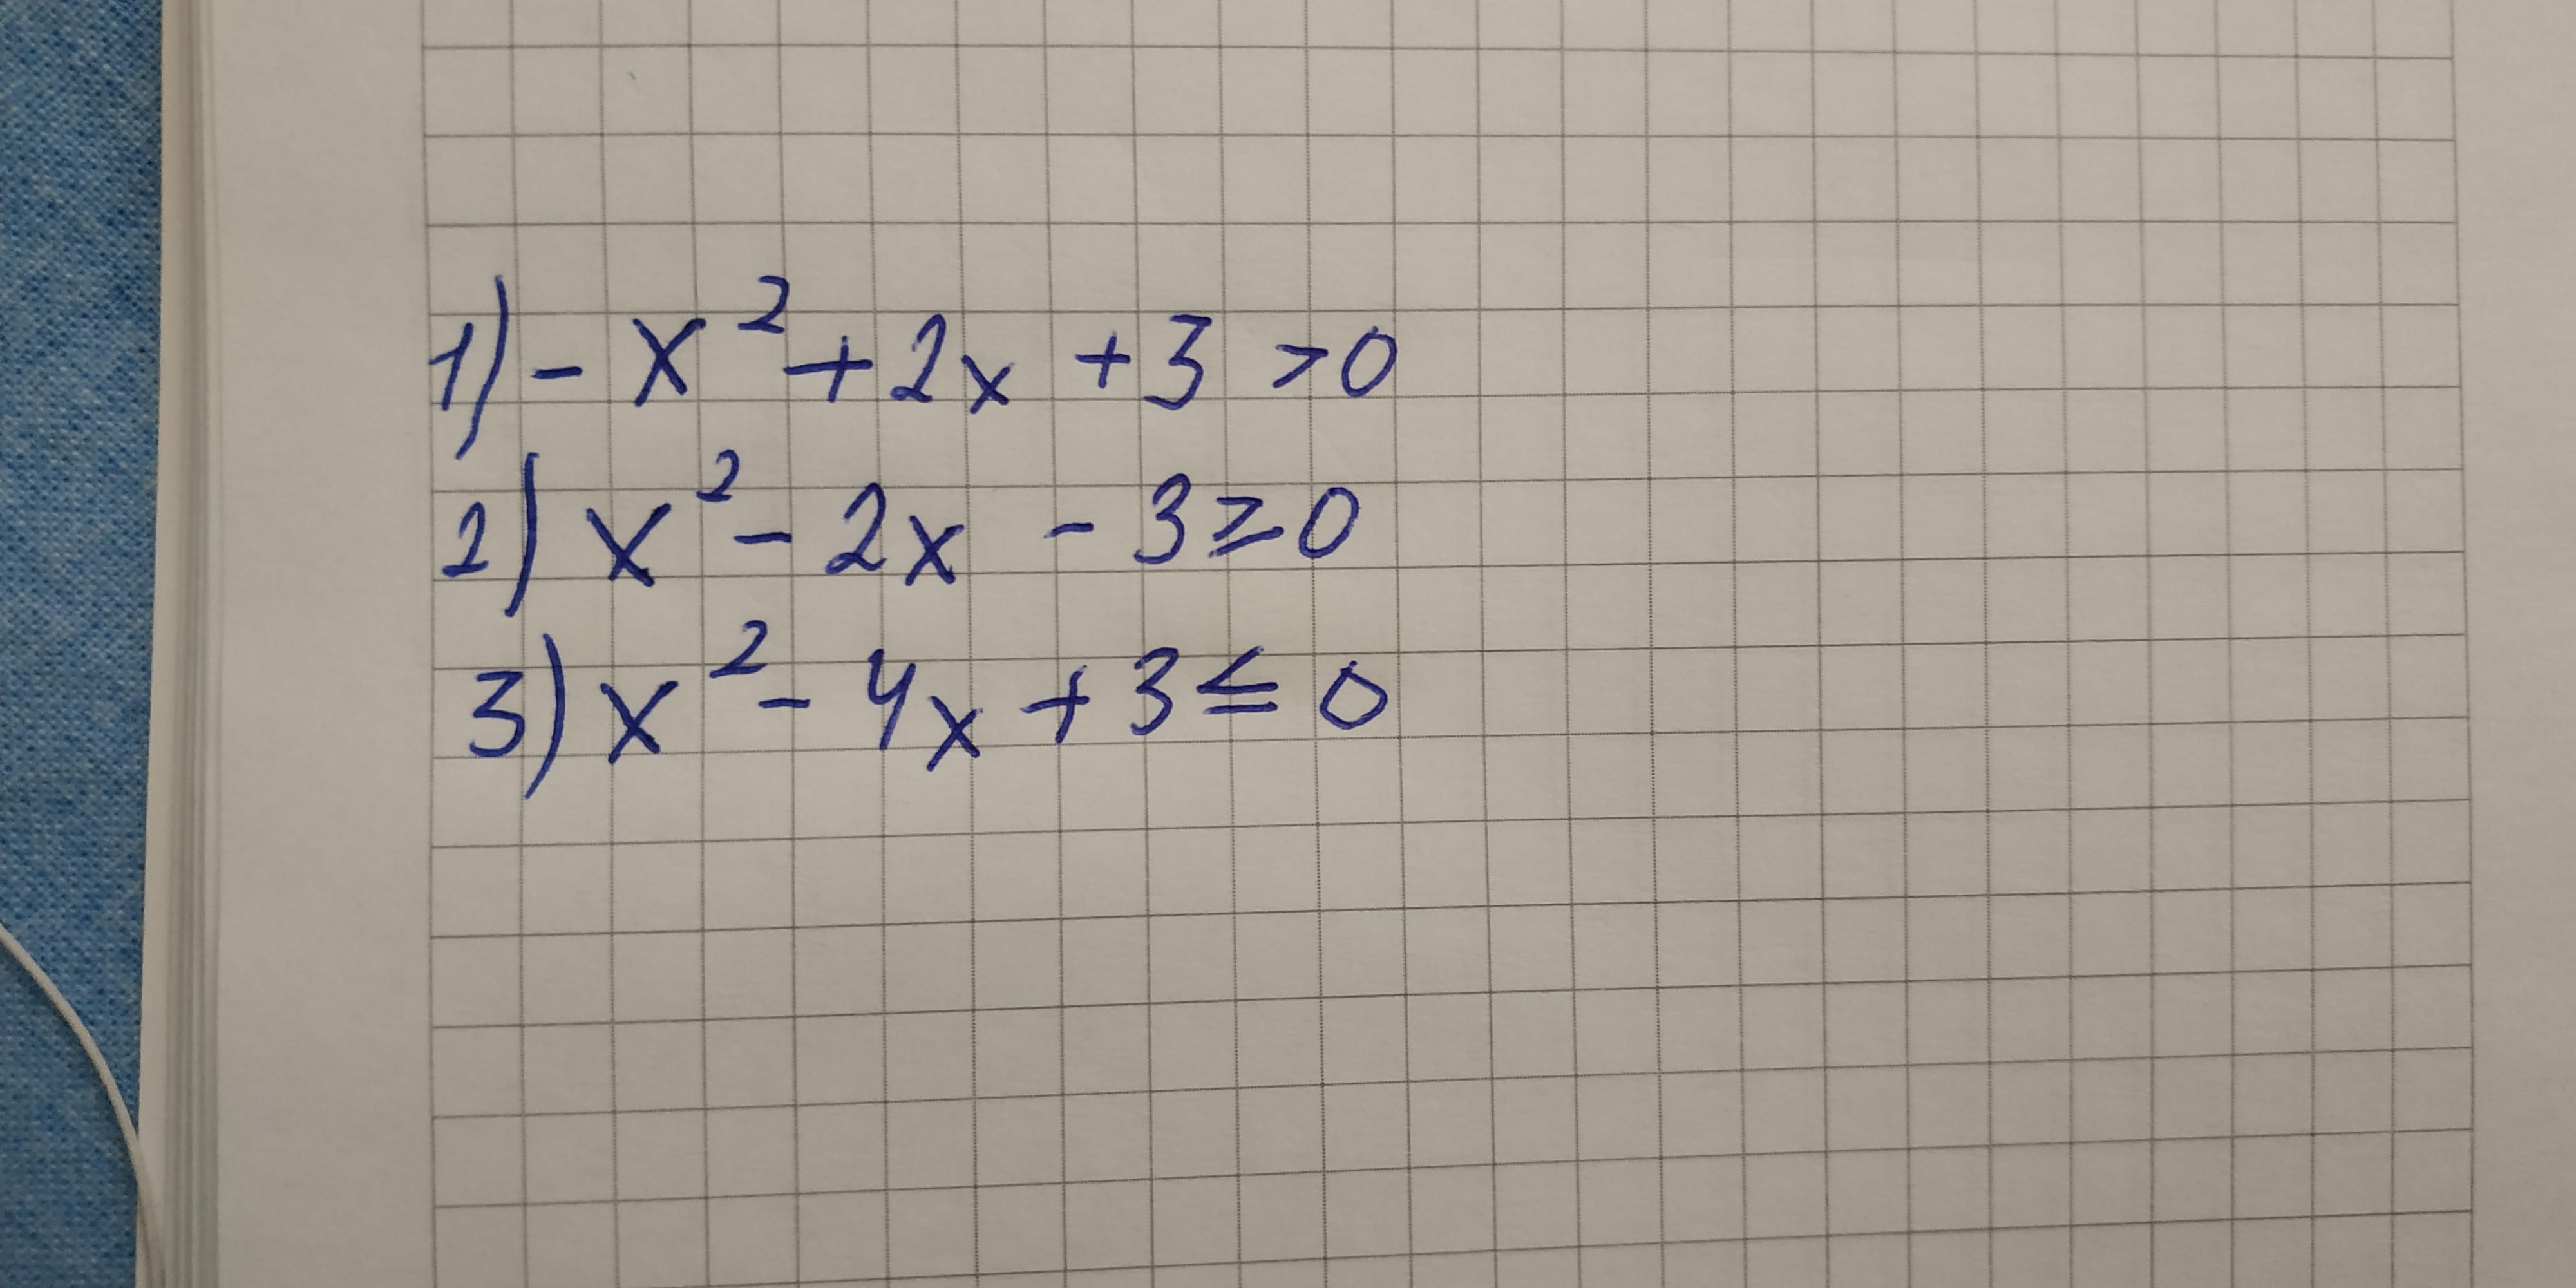 1) - x² + 2x + 3 > 0
2) x² - 2x - 3 ≥ 0
3) x² - 4x + 3 ≤ 0